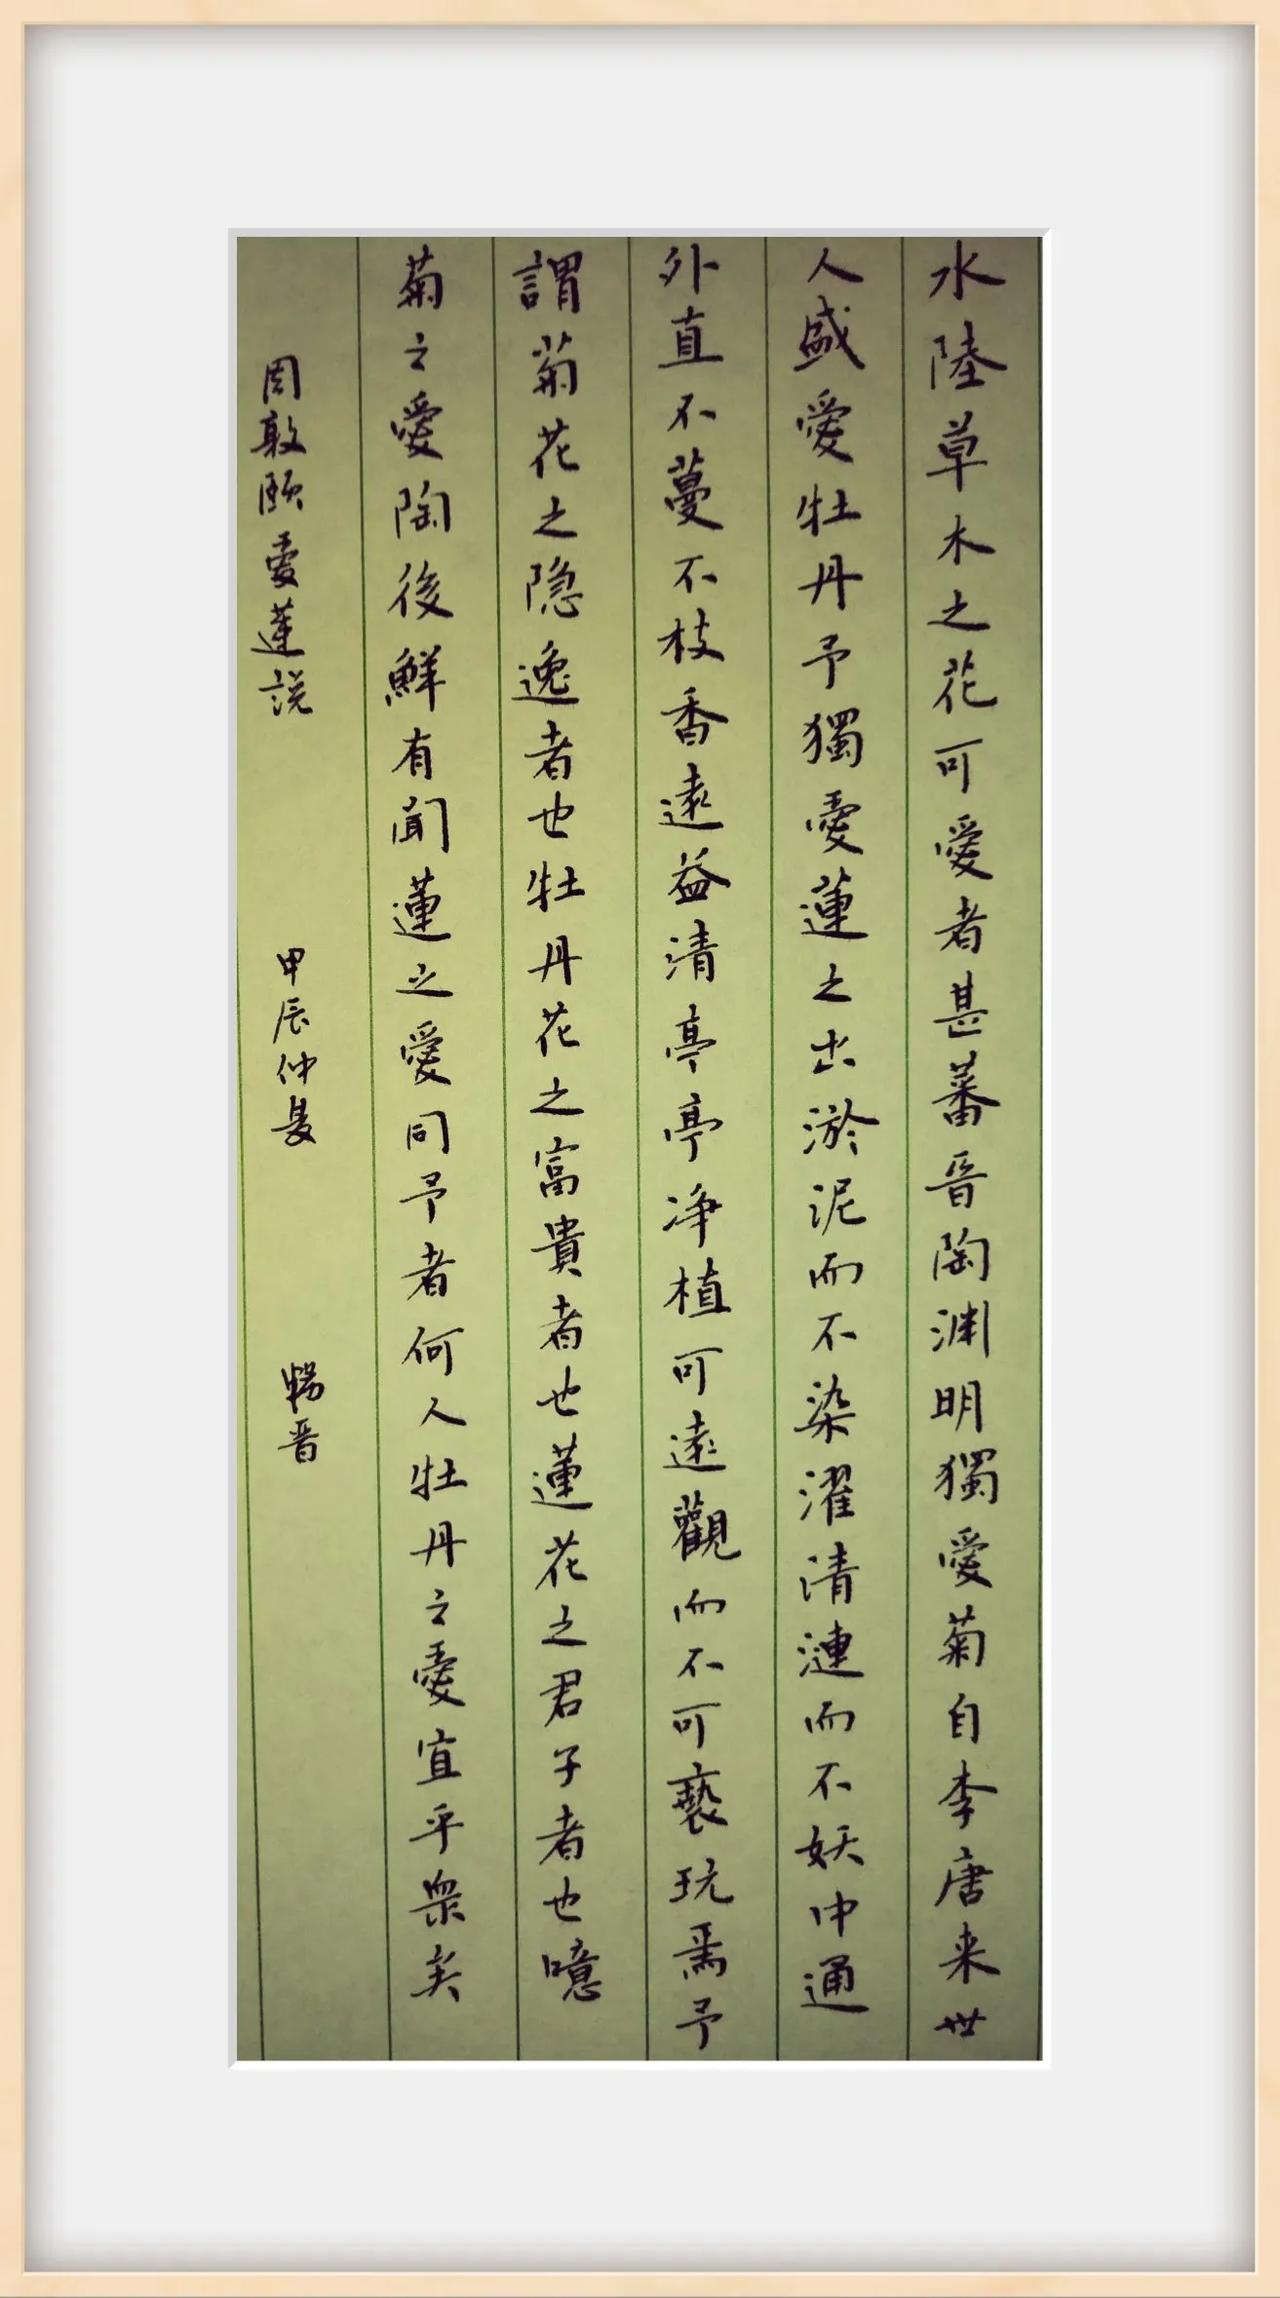 水陸草木之花可愛者甚蕃晋陶渊明獨愛菊自李唐来世
人盛愛牡丹予獨愛蓮之出淤泥而不染濯清漣而不妖中通
外直不蔓不枝香遠益清亭亭净植可遠觀而不可褻玩焉予
謂菊花之隐逸者也牡丹花之富貴者也蓮花之君子者也噫
菊之愛陶後鮮有闻蓮之愛同予者何人牡丹之愛宜乎眾矣
周敦颐爱蓮説 甲辰仲夏 暢晋